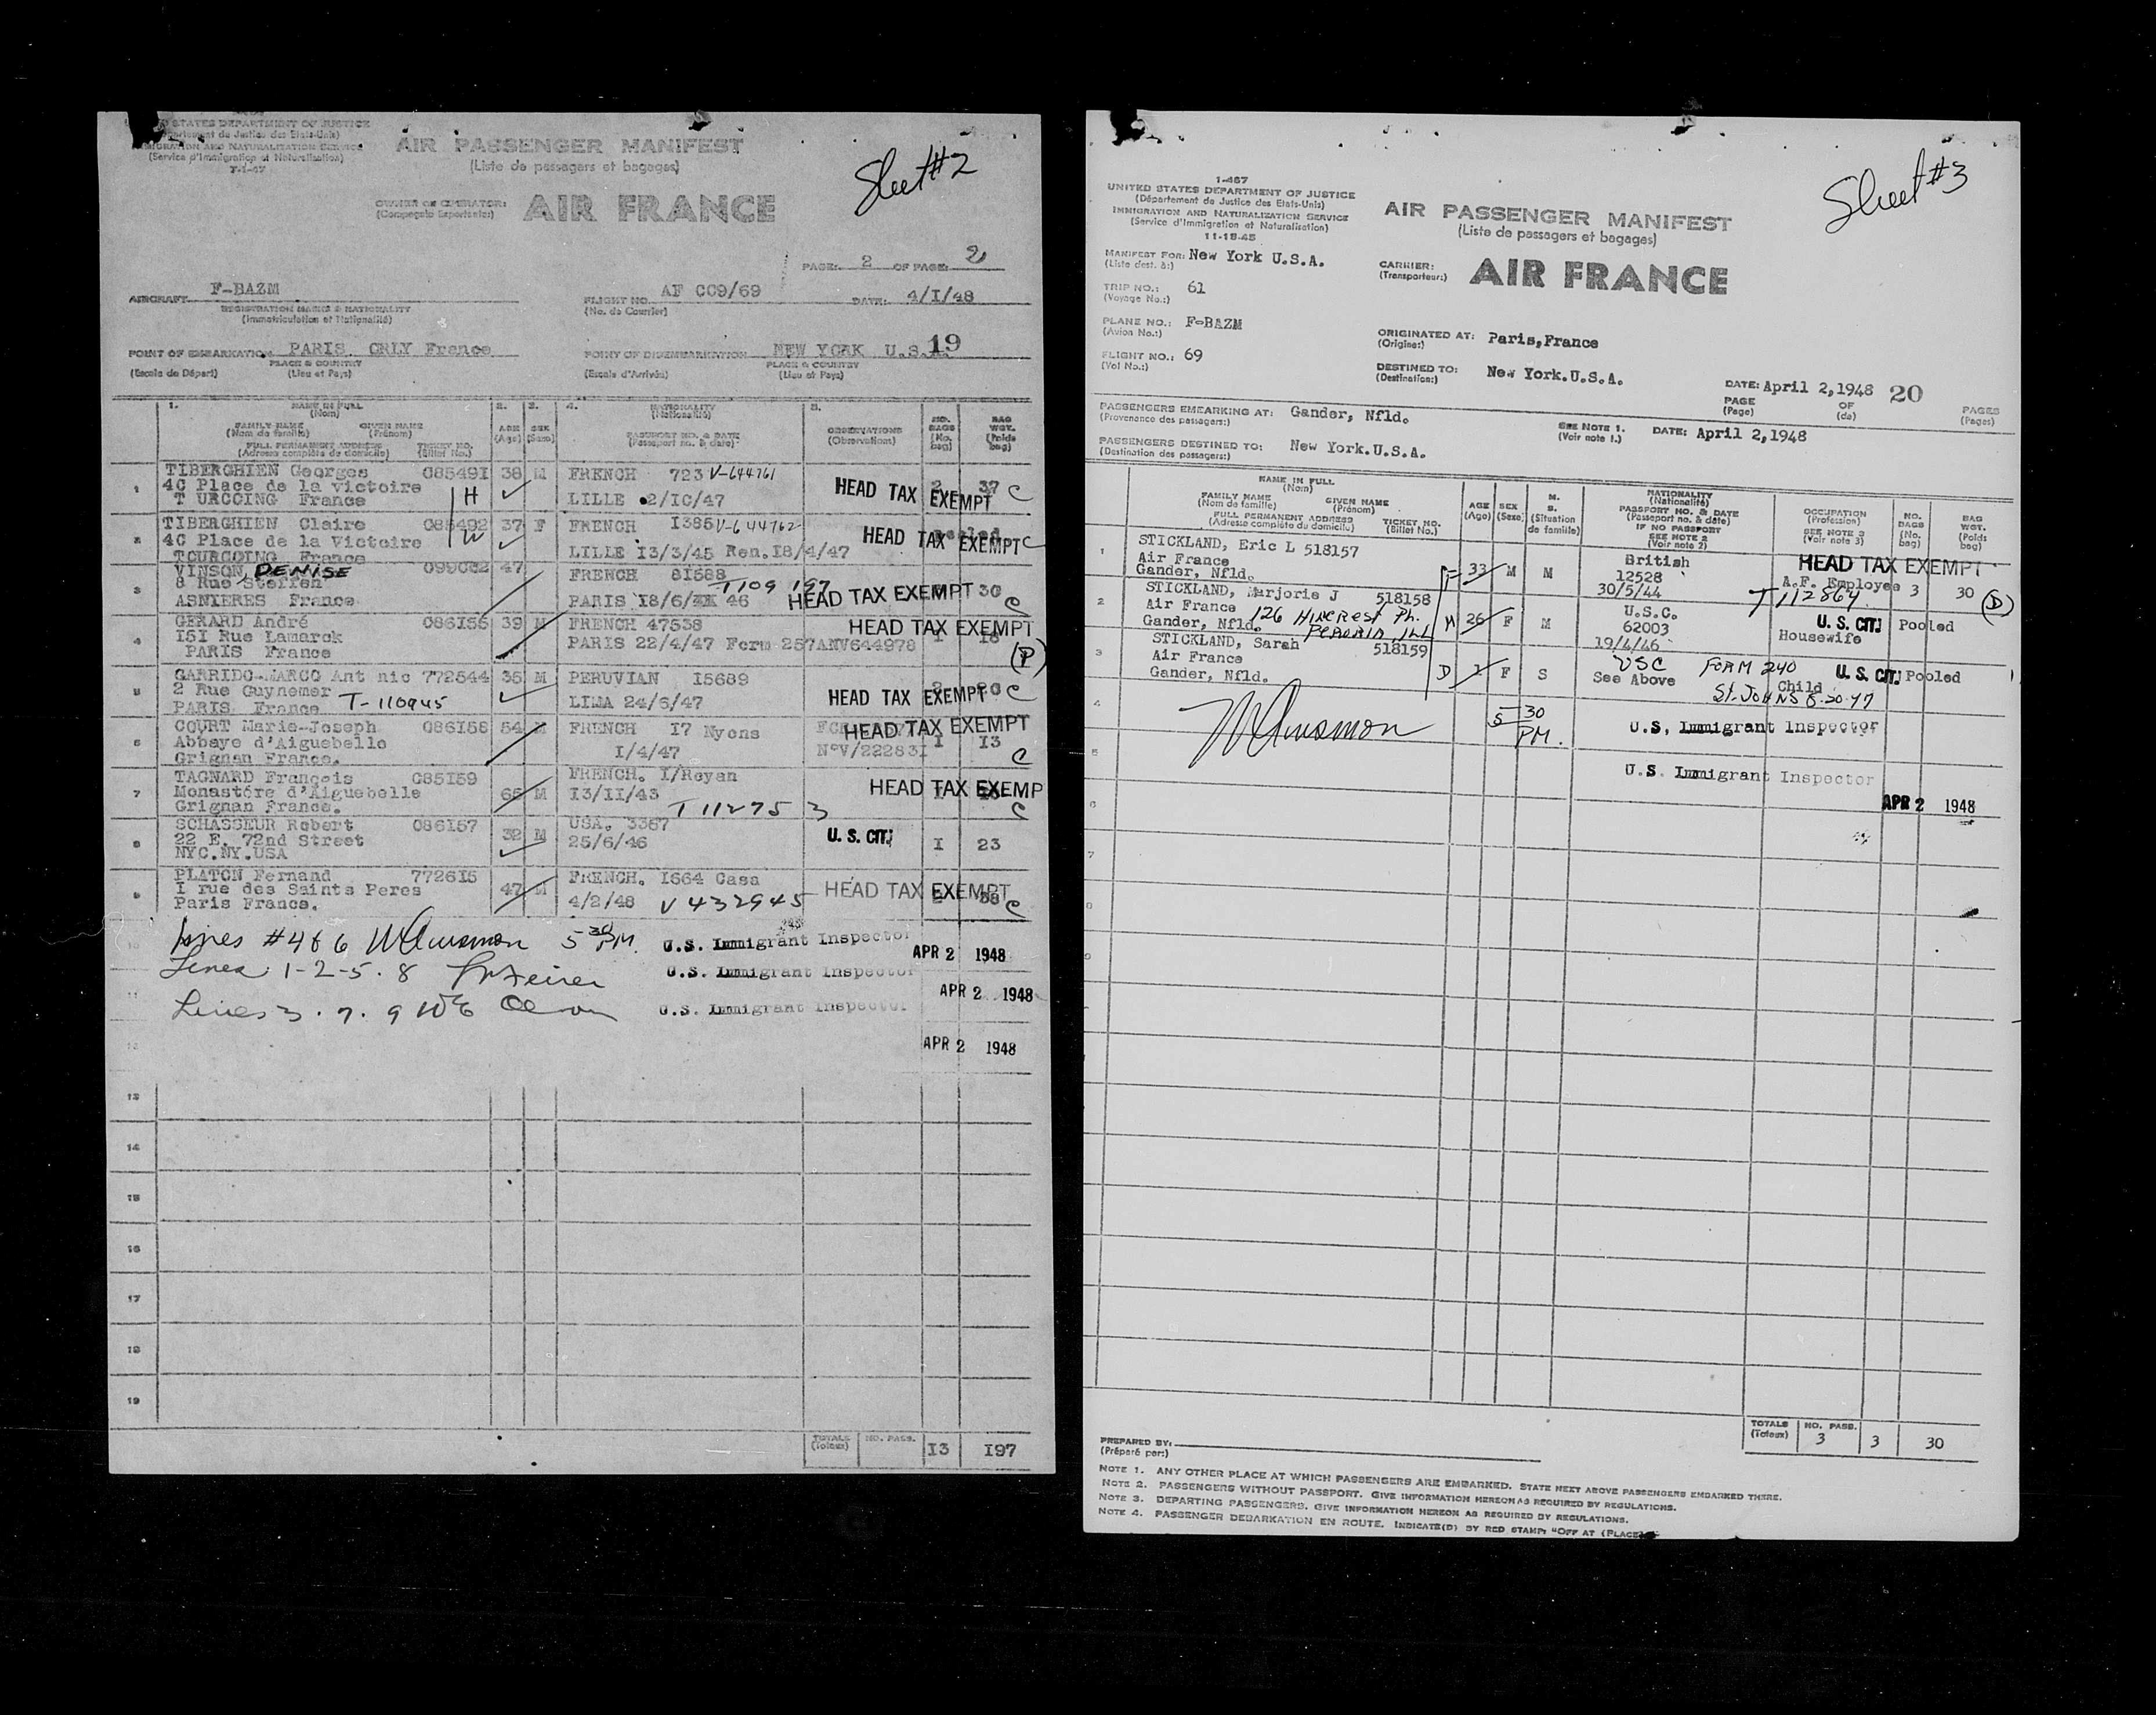 STATES DEPARTMENT OF JUSTICE
(Département de Justice des Etats-Unis)
IMMIGRATION AND NATURALIZATION SERVICE
(Service d'Immigration et Naturalisation)
7-1-47
AIR PASSENGER MANIFEST
(Liste de passagers et bagages)
Sheet #2
OWNER OR OPERATOR:
AIR FRANCE
PAGE: 2 OF PAGE: 2
AIRCRAFT F-BAZM
REGISTRATION MARKS & NATIONALITY
(Immatriculation et Nationalité)
FLIGHT NO. AF 009/69
(No. de Courrier)
DATE: 4/I/48
POINT OF EMBARKATION PARIS ORLY France
PLACE & COUNTRY
(Escale de Départ) (Lieu et Pays)
POINT OF DISEMBARKATION NEW YORK U.S.A. 19
PLACE & COUNTRY
(Escale d'Arrivée) (Lieu et Pays)
1. NAME IN FULL
(Nom)
FAMILY NAME GIVEN NAME
(Nom de famille) (Prénom)
FULL PERMANENT ADDRESS TICKET NO.
(Adresse complète de domicile) (Billet No.)
2. AGE
(Age)
3. SEX
(Sexe)
4. NATIONALITY
(Nationalité)
PASSPORT NO. & DATE
(Passeport no. & date)
5. OBSERVATIONS
(Observations)
NO. BAGS
(No. bag)
BAG WGT.
(Poids bag)
1 TIBERGHIEN Georges 085491 38 M FRENCH 723 V-644761
40 Place de la victoire H LILLE 2/IO/47 HEAD TAX EXEMPT 2 37 C
T URCOING France
2 TIBERGHIEN Claire 085492 37 F FRENCH I385 V-644762
40 Place de la Victoire W LILLE I3/3/45 Ren.I8/4/47 HEAD TAX EXEMPT pooled C
TOURCOING France
3 VINSON, DENISE 099032 47 FRENCH 81588 T109 197
8 Rue Steffen HEAD TAX EXEMPT 30 C
ASNIERES France PARIS I8/6/ 46
4 GERARD André 086I56 39 M FRENCH 47538 HEAD TAX EXEMPT
I5I Rue Lamarck PARIS 22/4/47 Form 257ANV644978 I I8 (P)
PARIS France
5 GARRIDO-MARCO Ant nio 772544 35 M PERUVIAN I5689
2 Rue Guynemer HEAD TAX EXEMPT 2 20 C
PARIS France T-110945 LIMA 24/6/47
6 COURT Marie-Joseph 086I58 54 M FRENCH I7 Nyons HEAD TAX EXEMPT
Abbaye d'Aiguebelle I/4/47 N°V/22283I I I3 C
Grignan France.
7 TAGNARD François 085I59 66 M FRENCH. I/Royan
Monastére d'Aiguebelle I3/II/43 HEAD TAX EXEMP
Grignan France. T 112753 C
8 SCHASSEUR Robert 086I57 32 M USA. 3367
22 E. 72nd Street 25/6/46 U. S. CIT. I 23
NYC.NY.USA
9 PLATON Fernand 7726I5 47 M FRENCH. I664 Casa
I rue des Saints Peres 4/2/48 V 432945 HEAD TAX EXEMPT 2 38 C
Paris France.
10 Lines #4 & 6 5 30 PM. U.S. Immigrant Inspector APR 2 1948
Lines 1-2-5.8 U.S. Immigrant Inspector
11 APR 2 1948
Lines 3.7.9 U.S. Immigrant Inspector
12 APR 2 1948
13
14
15
16
17
18
19
TOTALS
(Totaux) NO. PASS. I3 I97
Sheet #3
1-467
UNITED STATES DEPARTMENT OF JUSTICE
(Département de Justice des Etats-Unis)
IMMIGRATION AND NATURALIZATION SERVICE
(Service d'Immigration et Naturalisation)
11-18-45
AIR PASSENGER MANIFEST
(Liste de passagers et bagages)
MANIFEST FOR: New York U.S.A.
(Liste dest. à:)
CARRIER:
(Transporteur:)
AIR FRANCE
TRIP NO.: 61
(Voyage No.:)
PLANE NO.: F-BAZM
(Avion No.:)
ORIGINATED AT: Paris,France
(Origine:)
FLIGHT NO.: 69
(Vol No.:)
DESTINED TO: New York.U.S.A.
(Destination:)
DATE: April 2,1948 20
PAGE OF PAGES
(Page) (de) (Pages)
PASSENGERS EMBARKING AT: Gander, Nfld.
(Provenance des passagers:)
SEE NOTE 1.
(Voir note 1.)
DATE: April 2,1948
PASSENGERS DESTINED TO: New York.U.S.A.
(Destination des passagers:)
NAME IN FULL
(Nom)
FAMILY NAME GIVEN NAME
(Nom de famille) (Prénom)
FULL PERMANENT ADDRESS TICKET NO.
(Adresse complète du domicile) (Billet No.)
AGE
(Age)
SEX
(Sexe)
M. S.
(Situation de famille)
NATIONALITY
(Nationalité)
PASSPORT NO. & DATE
(Passeport no. & date)
IF NO PASSPORT
SEE NOTE 2
(Voir note 2)
OCCUPATION
(Profession)
SEE NOTE 3
(Voir note 3)
NO. BAGS
(No. bag)
BAG WGT.
(Poids bag)
1 STICKLAND, Eric L 518157 British HEAD TAX EXEMPT
Air France 33 M M 12528 A.F. Employee 3 30 (D)
Gander, Nfld. 30/5/44 T112864
2 STICKLAND, Marjorie J 518158 U.S.C. U. S. CIT.
Air France 126 HINCREST PL. M 26 F M 62003 Pooled
Gander, Nfld. PEORIA ILL 19/4/46 Housewife
3 STICKLAND, Sarah 518159 USC FORM 240 U.S. CIT.
Air France D 1 F S See Above Child Pooled
Gander, Nfld. St. JOHNS 8-20-47
4 5 30 PM. U.S. Immigrant Inspector
5 U.S. Immigrant Inspector
6 APR 2 1948
7
TOTALS
(Totaux) NO. PASS. 3 3 30
PREPARED BY:
(Préparé par:)
NOTE 1. ANY OTHER PLACE AT WHICH PASSENGERS ARE EMBARKED. STATE NEXT ABOVE PASSENGERS EMBARKED THERE.
NOTE 2. PASSENGERS WITHOUT PASSPORT. GIVE INFORMATION HEREON AS REQUIRED BY REGULATIONS.
NOTE 3. DEPARTING PASSENGERS. GIVE INFORMATION HEREON AS REQUIRED BY REGULATIONS.
NOTE 4. PASSENGER DEBARKATION EN ROUTE. INDICATE(D) BY RED STAMP: "OFF AT (PLACE)